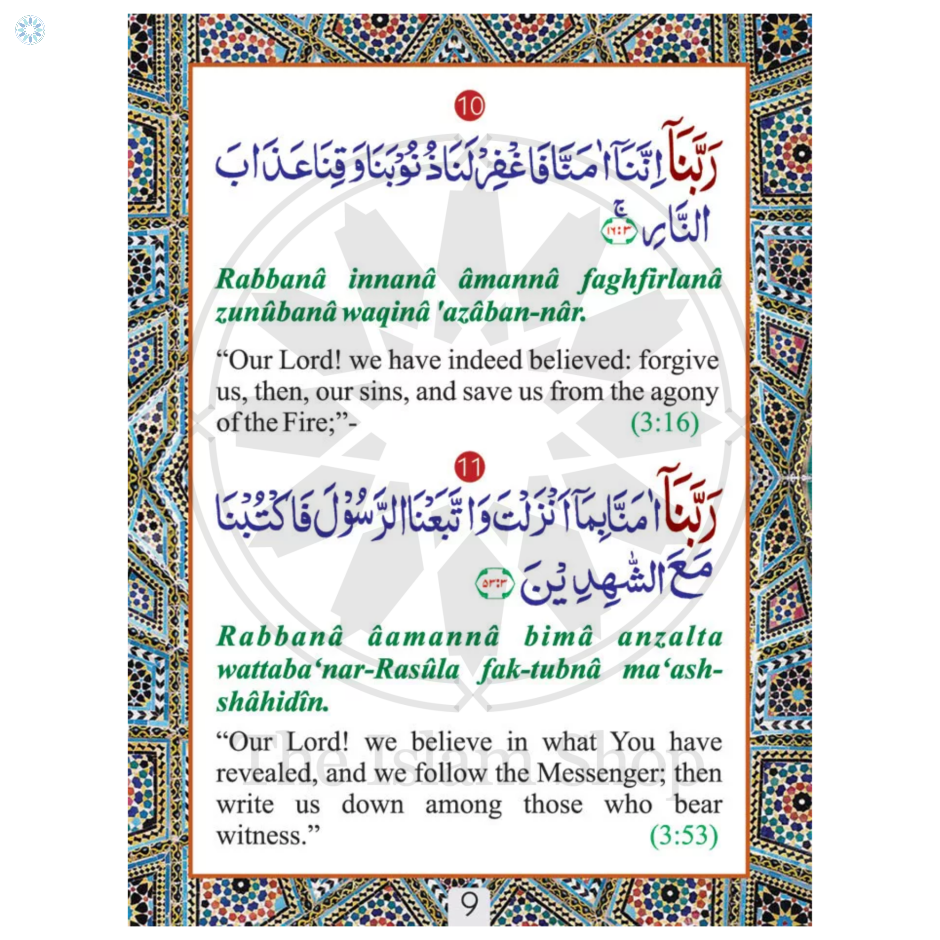 10
رَبَّنَآ اِنَّنَآ اٰمَنَّا فَاغْفِرْ لَنَا ذُنُوْبَنَا وَقِنَا عَذَابَ
النَّارِ ۚ ١٦:٣
Rabbanâ innanâ âmannâ faghfirlanâ
zunûbanâ waqinâ 'azâban-nâr.
“Our Lord! we have indeed believed: forgive
us, then, our sins, and save us from the agony
of the Fire;”-  (3:16)
11
رَبَّنَآ اٰمَنَّا بِمَآ اَنْزَلْتَ وَاتَّبَعْنَا الرَّسُوْلَ فَاكْتُبْنَا
مَعَ الشّٰهِدِيْنَ ٥٣:٣
Rabbanâ âamannâ bimâ anzalta
wattaba‘nar-Rasûla fak-tubnâ ma‘ash-
shâhidîn.
“Our Lord! we believe in what You have
revealed, and we follow the Messenger; then
write us down among those who bear
witness.”  (3:53)
The Islam Shop
9